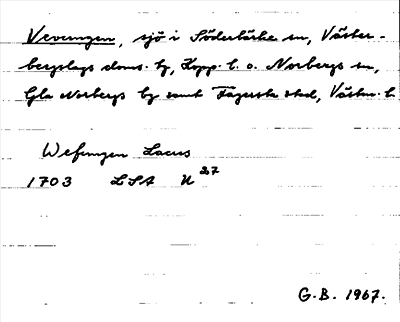 Vevungen, sjö i Söderbärke sn, Väster-
bergslags doms. hg, Kopp. l. o. Norbergs sn,
Gla Norbergs bg samt Fagersta stad, Västm. l.
Wefungen Lacus
1703 LSA U 27
G.B. 1967.